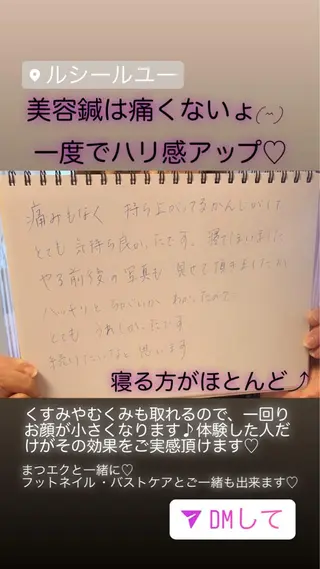 ルシールユー
美容鍼は痛くないよ(^^)
一度でハリ感アップ♡
痛みもなく 持ち上がってるかんじがして
とても気持ち良かったです。寝てしまいました
やる前後の写真も見せて頂きましたが
ハッキリと ちがいが わかったので
とても うれしかったです
続けたいなと思います
寝る方がほとんど⤴
くすみやむくみも取れるので、一回り
お顔が小さくなります♪体験した人だ
けがその効果をご実感頂けます♡
まつエクと一緒に♡
フットネイル・バストケアとご一緒も出来ます♡
DMして